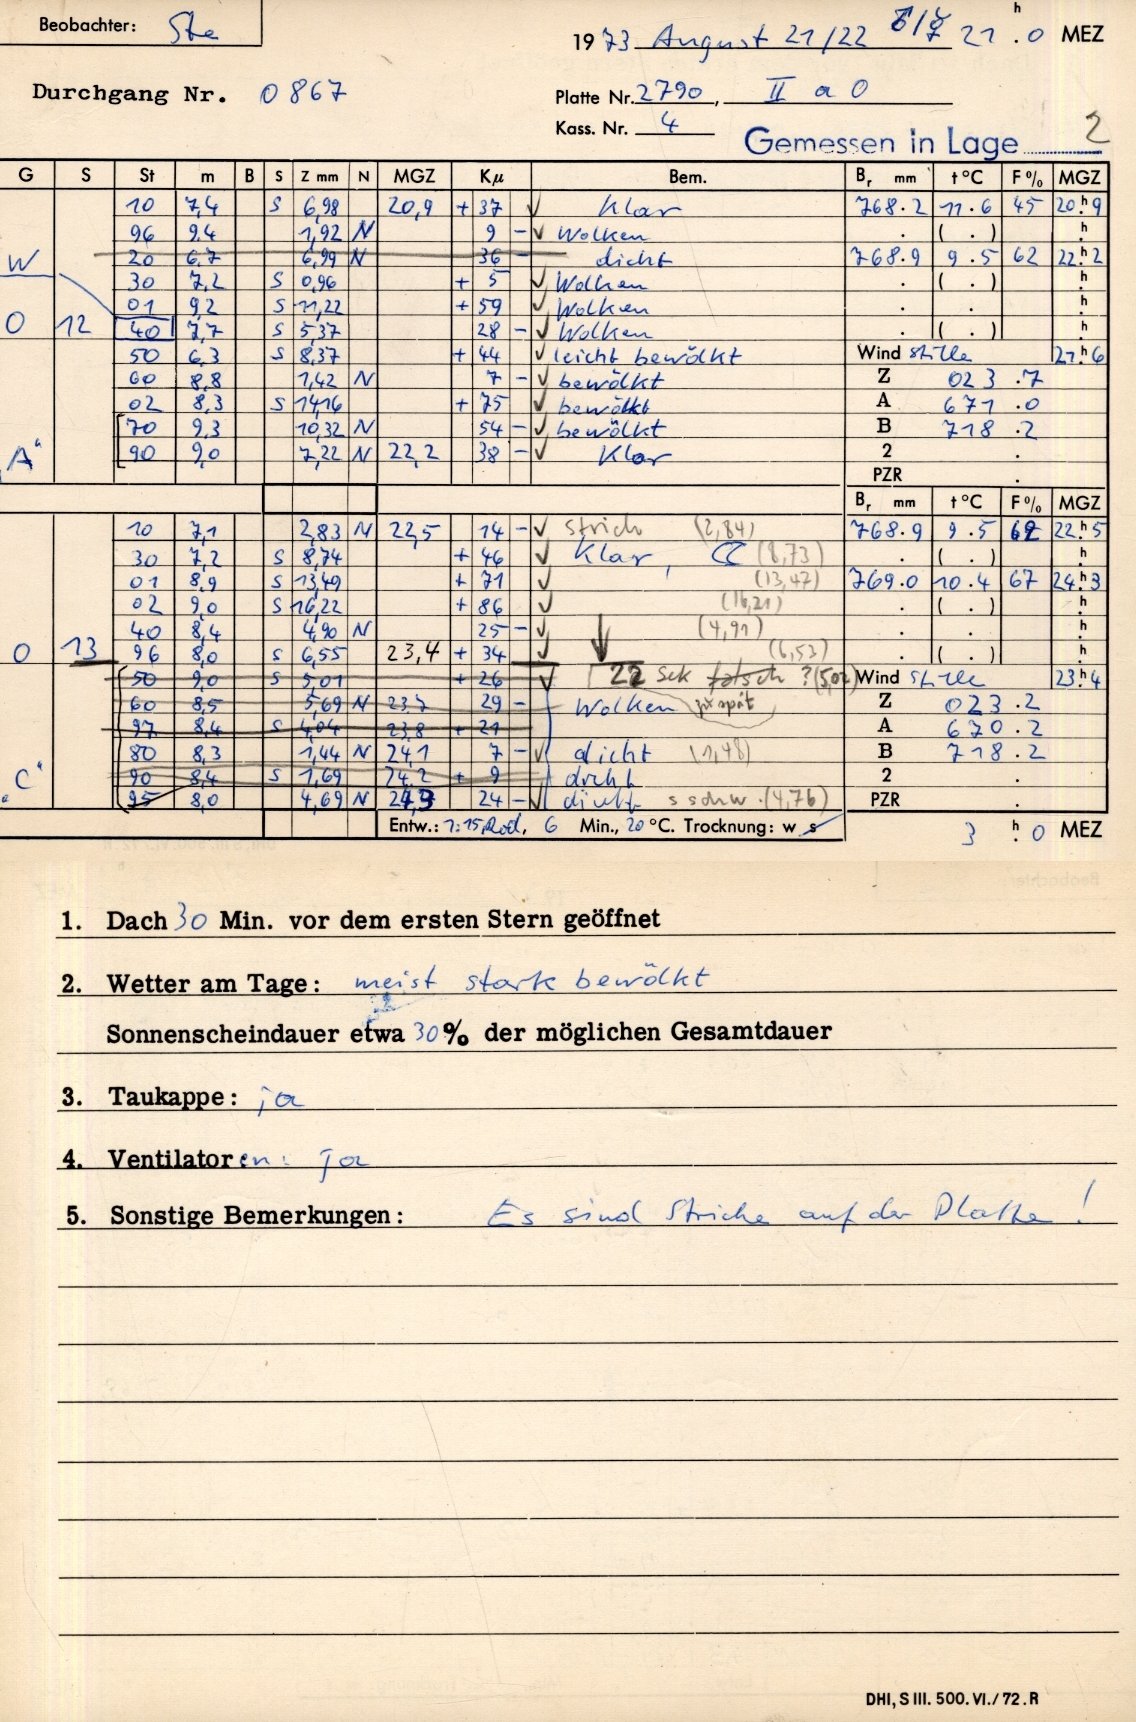 Beobachter: Ste
1973 August 21/22 21 h . 0 MEZ
Durchgang Nr. 0867
Platte Nr. 2790, II a 0
Kass. Nr. 4
Gemessen in Lage 2
G S St m B S Z mm N MGZ Kμ Bem. Br mm t °C F % MGZ
10 7,4 S 6,98 20,9 + 37 √ Klar 768.2 11.6 45 20h.9
96 9,4 1,92 N 9 - √ Wolken . ( . ) h.
W 20 6,7 6,99 N 36 - dicht 768.9 9.5 62 22h.2
30 7,2 S 0,96 + 5 √ Wolken . ( . ) h.
01 9,2 S 11,22 + 59 √ Wolken . . h.
O 12 40 7,7 S 5,37 28 - √ Wolken . ( . ) h.
50 6,3 S 8,37 + 44 √ leicht bewölkt Wind stille 21h.6
60 8,8 1,42 N 7 - √ bewölkt Z 023.7
02 8,3 S 14,16 + 75 √ bewölkt A 671.0
70 9,3 10,32 N 54 - √ bewölkt B 718.2
"A" 90 9,0 7,22 N 22,2 38 - √ Klar 2 .
PZR .
Br mm t °C F % MGZ
10 7,1 2,83 N 22,5 14 - √ Strich (2,84) 768.9 9.5 62 22h.5
30 7,2 S 8,74 + 46 √ Klar, ☾ (8,73) . ( . ) h.
01 8,9 S 13,49 + 71 √ (13,47) 769.0 10.4 67 24h.3
02 9,0 S 16,22 + 86 √ (16,21) . ( . ) h.
40 8,4 4,90 N 25 - √ (4,91) . . h.
O 13 96 8,0 S 6,55 23,4 + 34 √ (6,53) . ( . ) h.
50 9,0 S 5,01 + 26 √ 22 Sek falsch ? (5,02) Wind stille 23h.4
60 8,5 5,69 N 23,7 29 - Wolken zu spät Z 023.2
97 8,4 S 4,04 23,8 + 21 A 670.2
80 8,3 1,44 N 24,1 7 - √ dicht (1,48) B 718.2
"C" 90 8,4 S 1,69 24,2 + 9 dicht 2 .
95 8,0 4,69 N 24,3 24 - √ dicht s schw. (4,76) PZR .
Entw.: 1:15, Rod, 6 Min., 20 °C. Trocknung: w s 3 h . 0 MEZ
1. Dach 30 Min. vor dem ersten Stern geöffnet
2. Wetter am Tage: meist stark bewölkt
Sonnenscheindauer etwa 30 % der möglichen Gesamtdauer
3. Taukappe: ja
4. Ventilatoren: ja
5. Sonstige Bemerkungen: Es sind Striche auf der Platte!
DHI, S III. 500. VI./72. R